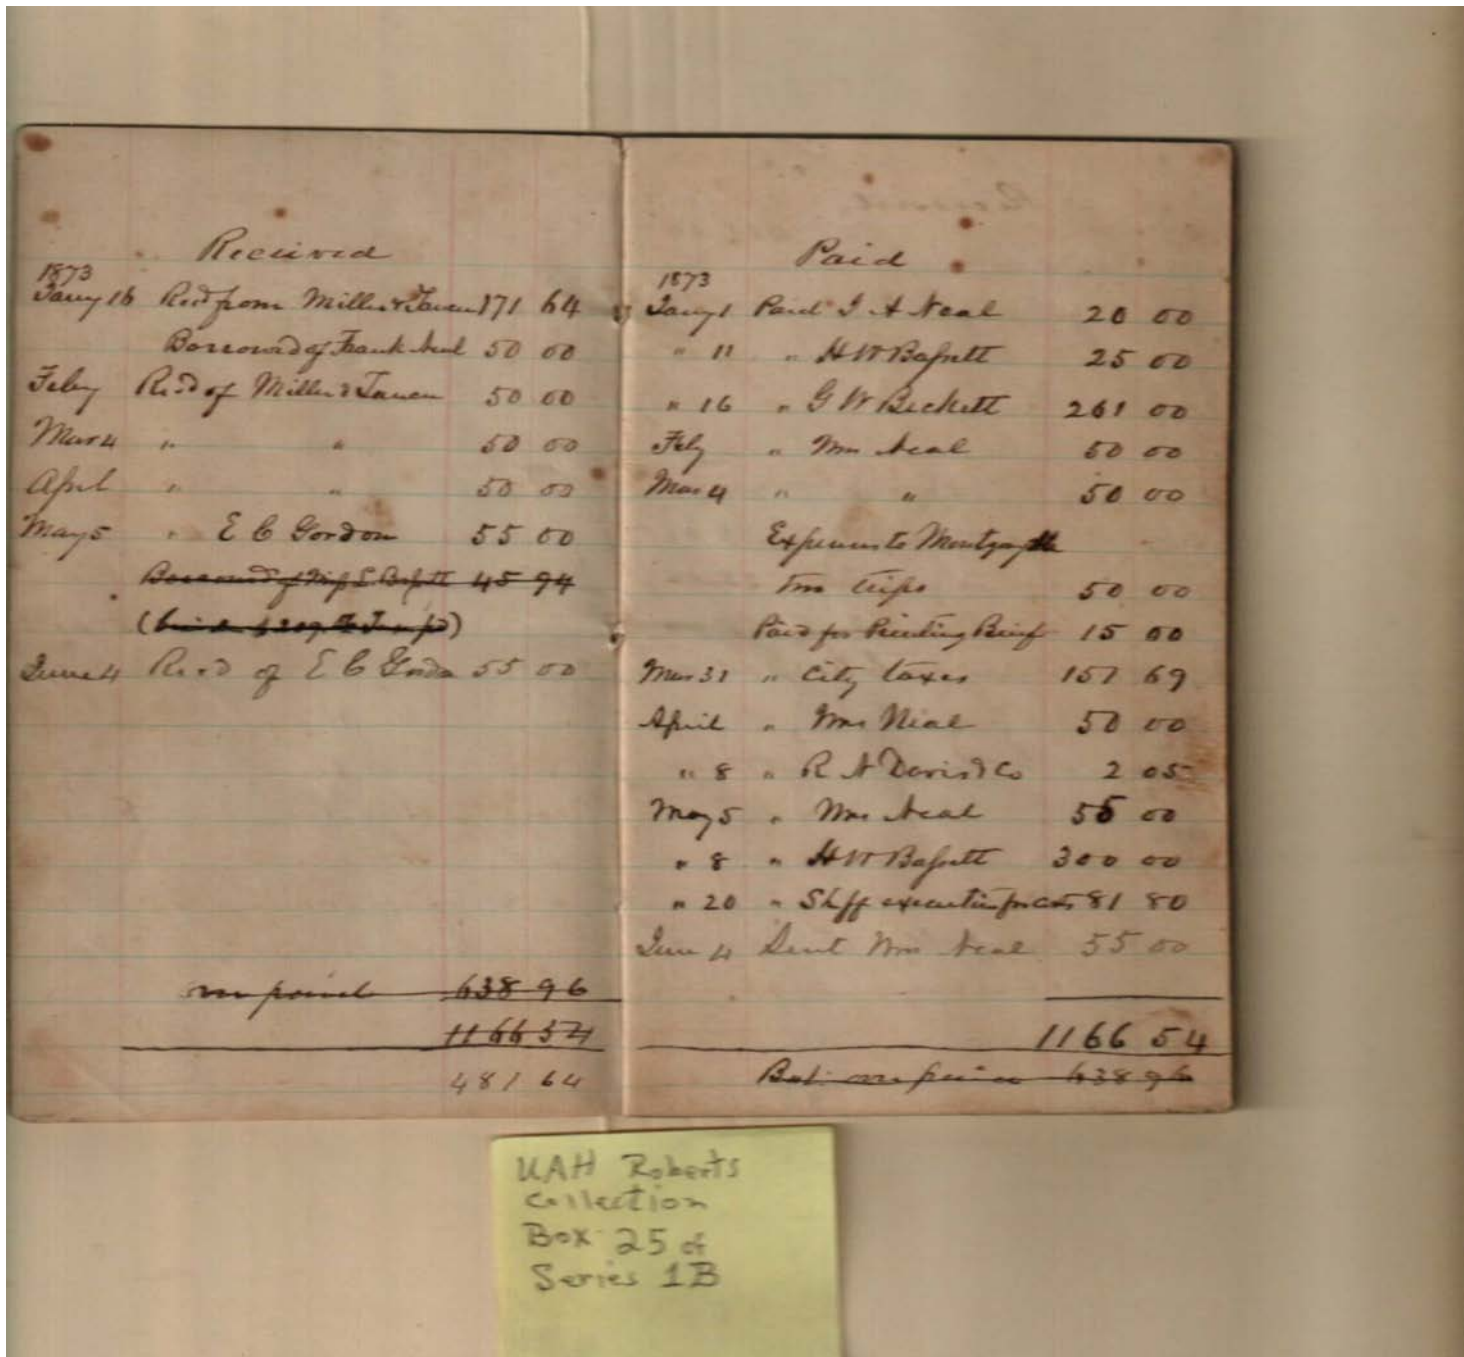 Received
1873
Jany 16 Recd from Miller & 171 64
Borrowed of Frank Neal 50 00
Feby Recd of Miller & 50 00
Mar 4 " " 50 00
April " " 50 00
May 5 " E C Gordon 55 00
Borrowed of Miss Bassett 45 94
June 4 Recd of E C Gordon 55 00
638 96
1166 54
481 64
Paid
1873
Jany 1 Paid A Neal 20 00
" 11 " H W Bassett 25 00
" 16 " G W Beckett 261 00
Feby " Wm Neal 50 00
Mar 4 " " 50 00
Expenses to
two trips 50 00
Paid for Printing Brief 15 00
Mar 31 " City taxes 151 69
April " Wm Neal 50 00
" 8 " R A Davis & Co 2 05
May 5 " Wm Neal 55 00
" 8 " H W Bassett 300 00
" 20 " Shff execution for 81 80
June 4 Sent Wm Neal 55 00
1166 54
Bal 638 96
UAH Roberts
Collection
Box 25 of
Series 1B